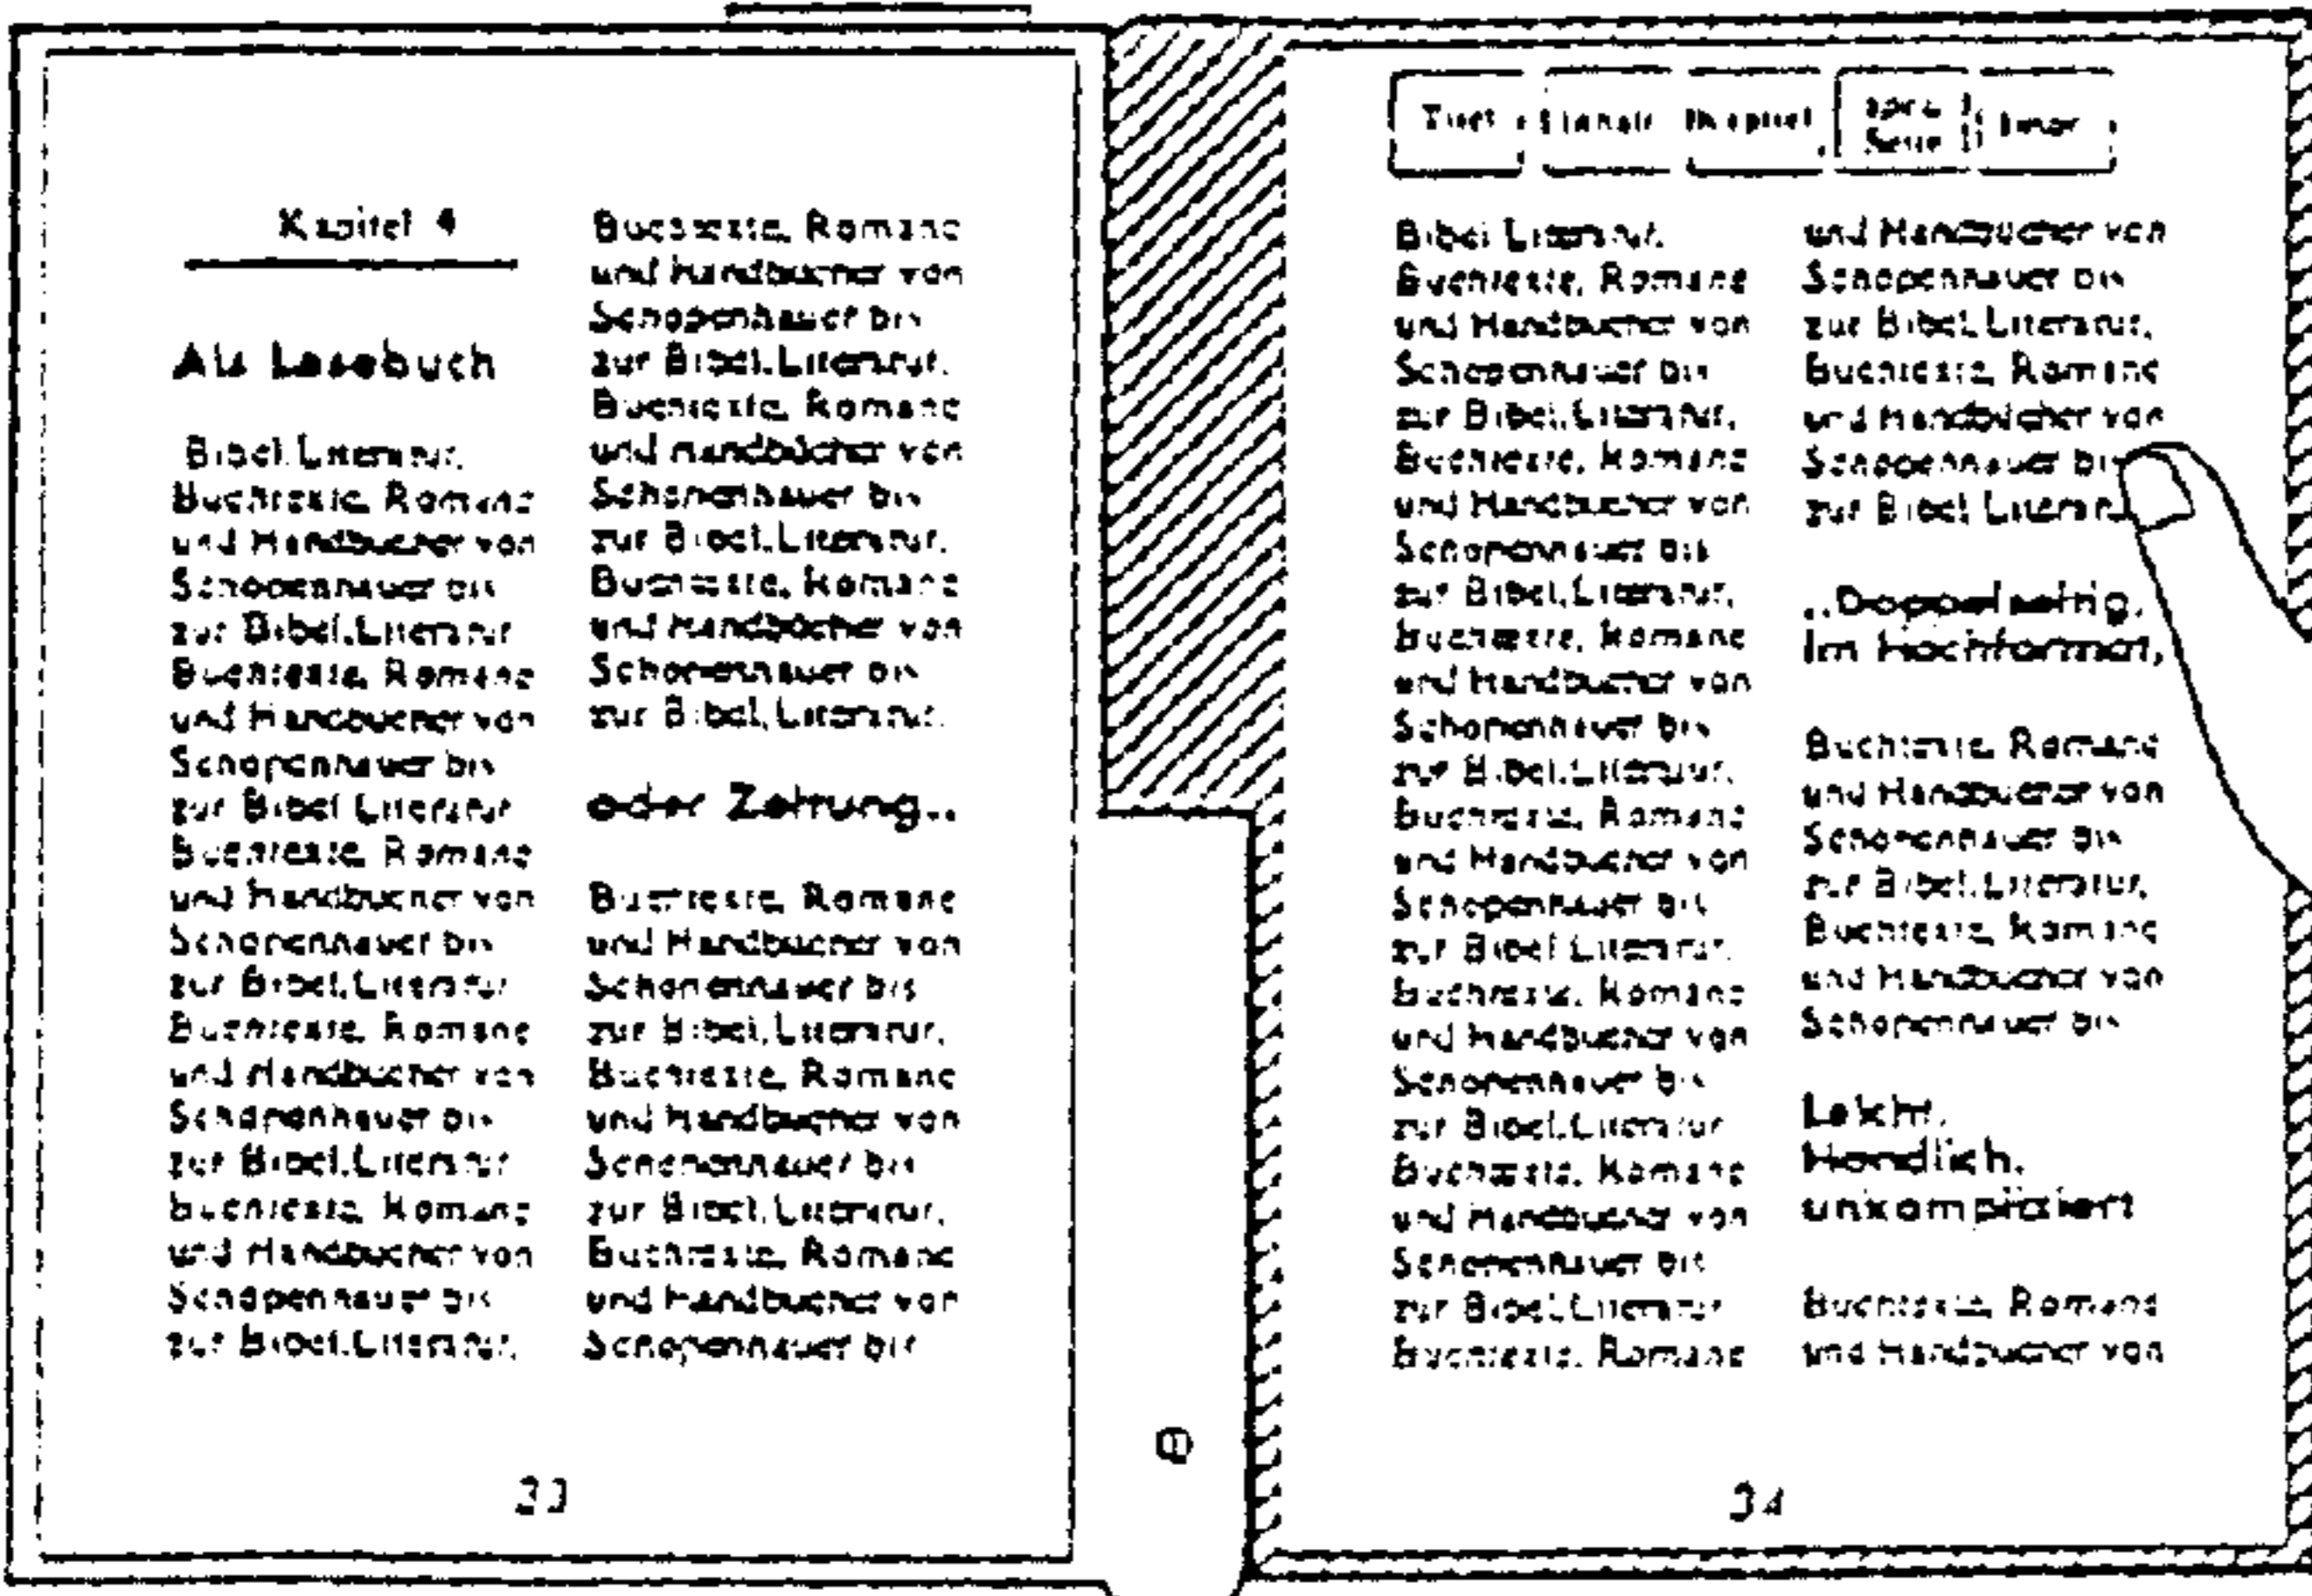 Kapitel 4
Als Lesebuch
Bibel. Literatur.
Buchtexte, Romane
und Handbucher von
Schopenhauer bis
zur Bibel. Literatur
Buchtexte, Romane
und Handbucher von
Schopenhauer bis
zur Bibel Literatur
Buchtexte, Romane
und Handbucher von
Schopenhauer bis
zur Bibel. Literatur
Buchtexte, Romane
und Handbucher von
Schopenhauer bis
zur Bibel. Literatur
Buchtexte, Romane
und Handbucher von
Schopenhauer bis
zur Bibel. Literatur.
Buchtexte, Romane
und Handbucher von
Schopenhauer bis
zur Bibel. Literatur.
Buchtexte, Romane
und Handbücher von
Schopenhauer bis
zur Bibel. Literatur.
Buchtexte, Romane
und Handbücher von
Schopenhauer bis
zur Bibel. Literatur.
oder Zeitung..
Buchtexte, Romane
und Handbucher von
Schopenhauer bis
zur Bibel. Literatur.
Buchtexte, Romane
und Handbucher von
Schopenhauer bis
zur Bibel. Literatur.
Buchtexte, Romane
und Handbucher von
Schopenhauer bis
33
Seite
Bibel Literatur.
Buchtexte, Romane
und Handbucher von
Schopenhauer bis
zur Bibel. Literatur.
Buchtexte, Romane
und Handbucher von
Schopenhauer bis
zur Bibel. Literatur.
Buchtexte, Romane
und Handbucher von
Schopenhauer bis
zur Bibel. Literatur.
Buchtexte, Romane
und Handbucher von
Schopenhauer bis
zur Bibel Literatur.
Buchtexte, Romane
und Handbucher von
Schopenhauer bis
zur Bibel. Literatur
Buchtexte, Romane
und Handbucher von
Schopenhauer bis
zur Bibel. Literatur
Buchtexte, Romane
und Handbucher von
Schopenhauer bis
zur Bibel. Literatur.
Buchtexte, Romane
und Handbücher von
Schopenhauer bis
zur Bibel
..Doppelseitig.
Im Hochformat,
Buchtexte, Romane
und Handbucher von
Schopenhauer bis
zur Bibel. Literatur.
Buchtexte, Romane
und Handbucher von
Schopenhauer bis
Leicht.
Handlich.
unkompliziert
Buchtexte, Romane
und Handbucher von
34